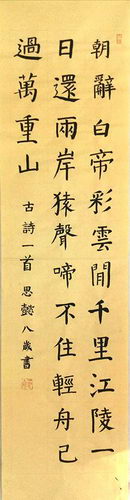 朝辭白帝彩雲間千里江陵一
日還兩岸猿聲啼不住輕舟已
過萬重山
古詩一首 思懿八歲書